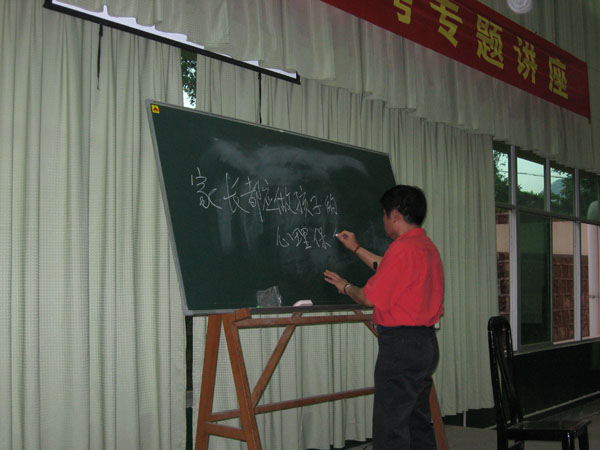 考专题讲座
家长都应做孩子的
心理保